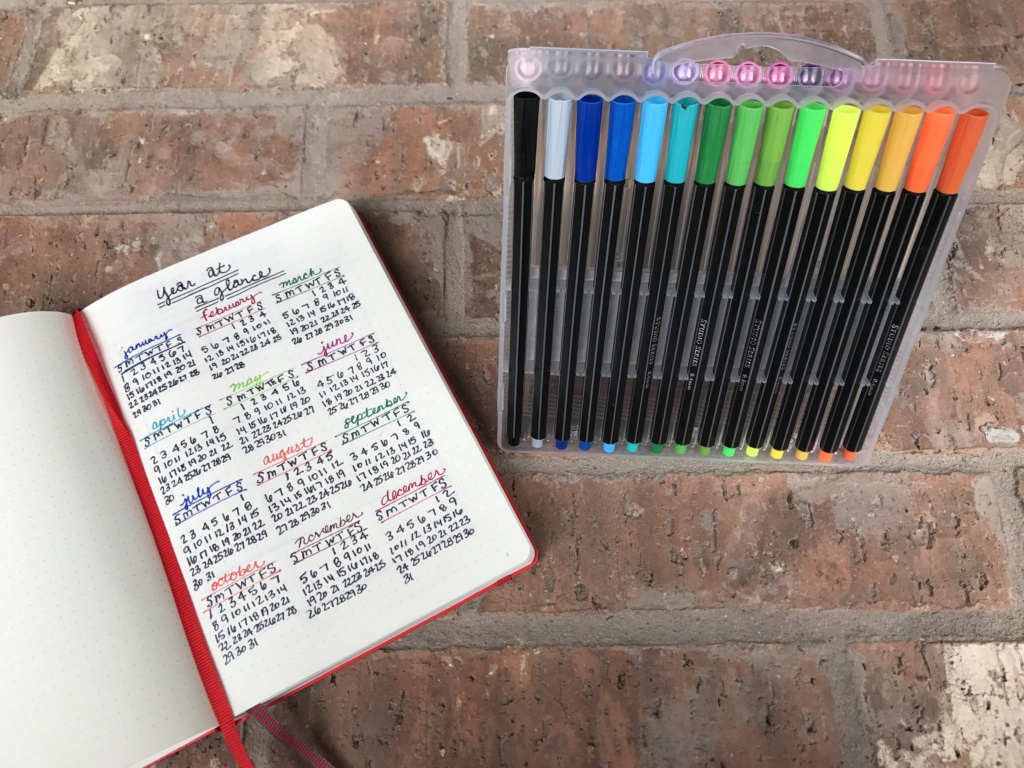 Year at
a glance
january
S M T W T F S
1 2 3 4 5 6 7
8 9 10 11 12 13 14
15 16 17 18 19 20 21
22 23 24 25 26 27 28
29 30 31
february
S M T W T F S
1 2 3 4
5 6 7 8 9 10 11
12 13 14 15 16 17 18
19 20 21 22 23 24 25
26 27 28
march
S M T W T F S
1 2 3 4
5 6 7 8 9 10 11
12 13 14 15 16 17 18
19 20 21 22 23 24 25
26 27 28 29 30 31
april
S M T W T F S
2 3 4 5 6 7 8
9 10 11 12 13 14 15
16 17 18 19 20 21 22
23 24 25 26 27 28 29
30
may
S M T W T F S
1 2 3 4 5 6
7 8 9 10 11 12 13
14 15 16 17 18 19 20
21 22 23 24 25 26 27
28 29 30 31
june
S M T W T F S
1 2 3
4 5 6 7 8 9 10
11 12 13 14 15 16 17
18 19 20 21 22 23 24
25 26 27 28 29 30
july
S M T W T F S
2 3 4 5 6 7 8
9 10 11 12 13 14 15
16 17 18 19 20 21 22
23 24 25 26 27 28 29
30 31
august
S M T W T F S
1 2 3 4 5
6 7 8 9 10 11 12
13 14 15 16 17 18 19
20 21 22 23 24 25 26
27 28 29 30 31
september
S M T W T F S
1 2
3 4 5 6 7 8 9
10 11 12 13 14 15 16
17 18 19 20 21 22 23
24 25 26 27 28 29 30
october
S M T W T F S
1 2 3 4 5 6 7
8 9 10 11 12 13 14
15 16 17 18 19 20 21
22 23 24 25 26 27 28
29 30 31
november
S M T W T F S
1 2 3 4
5 6 7 8 9 10 11
12 13 14 15 16 17 18
19 20 21 22 23 24 25
26 27 28 29 30
december
S M T W T F S
1 2
3 4 5 6 7 8 9
10 11 12 13 14 15 16
17 18 19 20 21 22 23
24 25 26 27 28 29 30
31
STUDIO SERIES
STUDIO SERIES
STUDIO SERIES
STUDIO SERIES